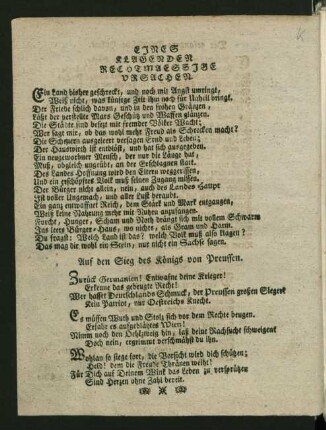 EINES
KLAGENDEN
RECHTMAESSIGE
VRSACHEN
Ein Land bisher geschreckt, und noch mit Angst umringt,
Weiß nicht, was künftge Zeit ihn noch für Unheil bringt.
Der Friede schlich davon, und in den frohen Gränzen,
Läßt der verstellte Mars Geschütz und Waffen glänzen.
Die Städte sind besezt mit fremder Völker Wacht;
Wer sagt mir, ob das wohl mehr Freud als Schrecken macht?
Die Scheuren ausgeleert versagen Brod und Leben;
Der Hauswirth ist entblößt, und hat sich ausgegeben.
Ein neugeworbner Mensch, der nur die Länge hat,
Muß, obgleich ungeübt, an der Erschlagnen statt.
Des Landes Hoffnung wird den Eltern weggerissen,
Und ein geschöpftes Volk muß seinen Zugang missen.
Der Bürger nicht allein, nein, auch des Landes Haupt
Ist voller Ungemach, und aller Lust beraubt.
Ein ganz entwafnet Reich, dem Stärk und Mark entgangen,
Weiß keine Nahrung mehr mit Nutzen anzufangen.
Furcht, Hunger, Scham und Noth drängt sich mit vollem Schwarm
Ins leere Bürger-Haus, wo nichts, als Gram und Harm.
Du fragst: Welch Land ist das? welch Volk muß also klagen?
Das mag dir wohl ein Stein, nur nicht ein Sachse sagen.
Auf den Sieg des Königs von Preussen.
Zurück Germanien! Entwafne deine Krieger!
Erkenne das gebeugte Recht!
Wer hasset Deutschlands Schmuck, der Preussen großen Sieger?
Kein Patriot, nur Oestreichs Knecht.
Es müssen Wuth und Stolz sich vor dem Rechte beugen.
Erfahr es aufgeblähtes Wien!
Nimm noch den Oehlzweig hin, laß deine Rachsucht schweigen!
Doch nein, ergrimmt verschmähst du ihn.
Wohlan so siege fort, die Vorsicht wird dich schützen;
Held! dem die Freude Thränen weiht!
Für Dich auf Deinem Wink das Leben zu versprützen
Sind Herzen ohne Zahl bereit.